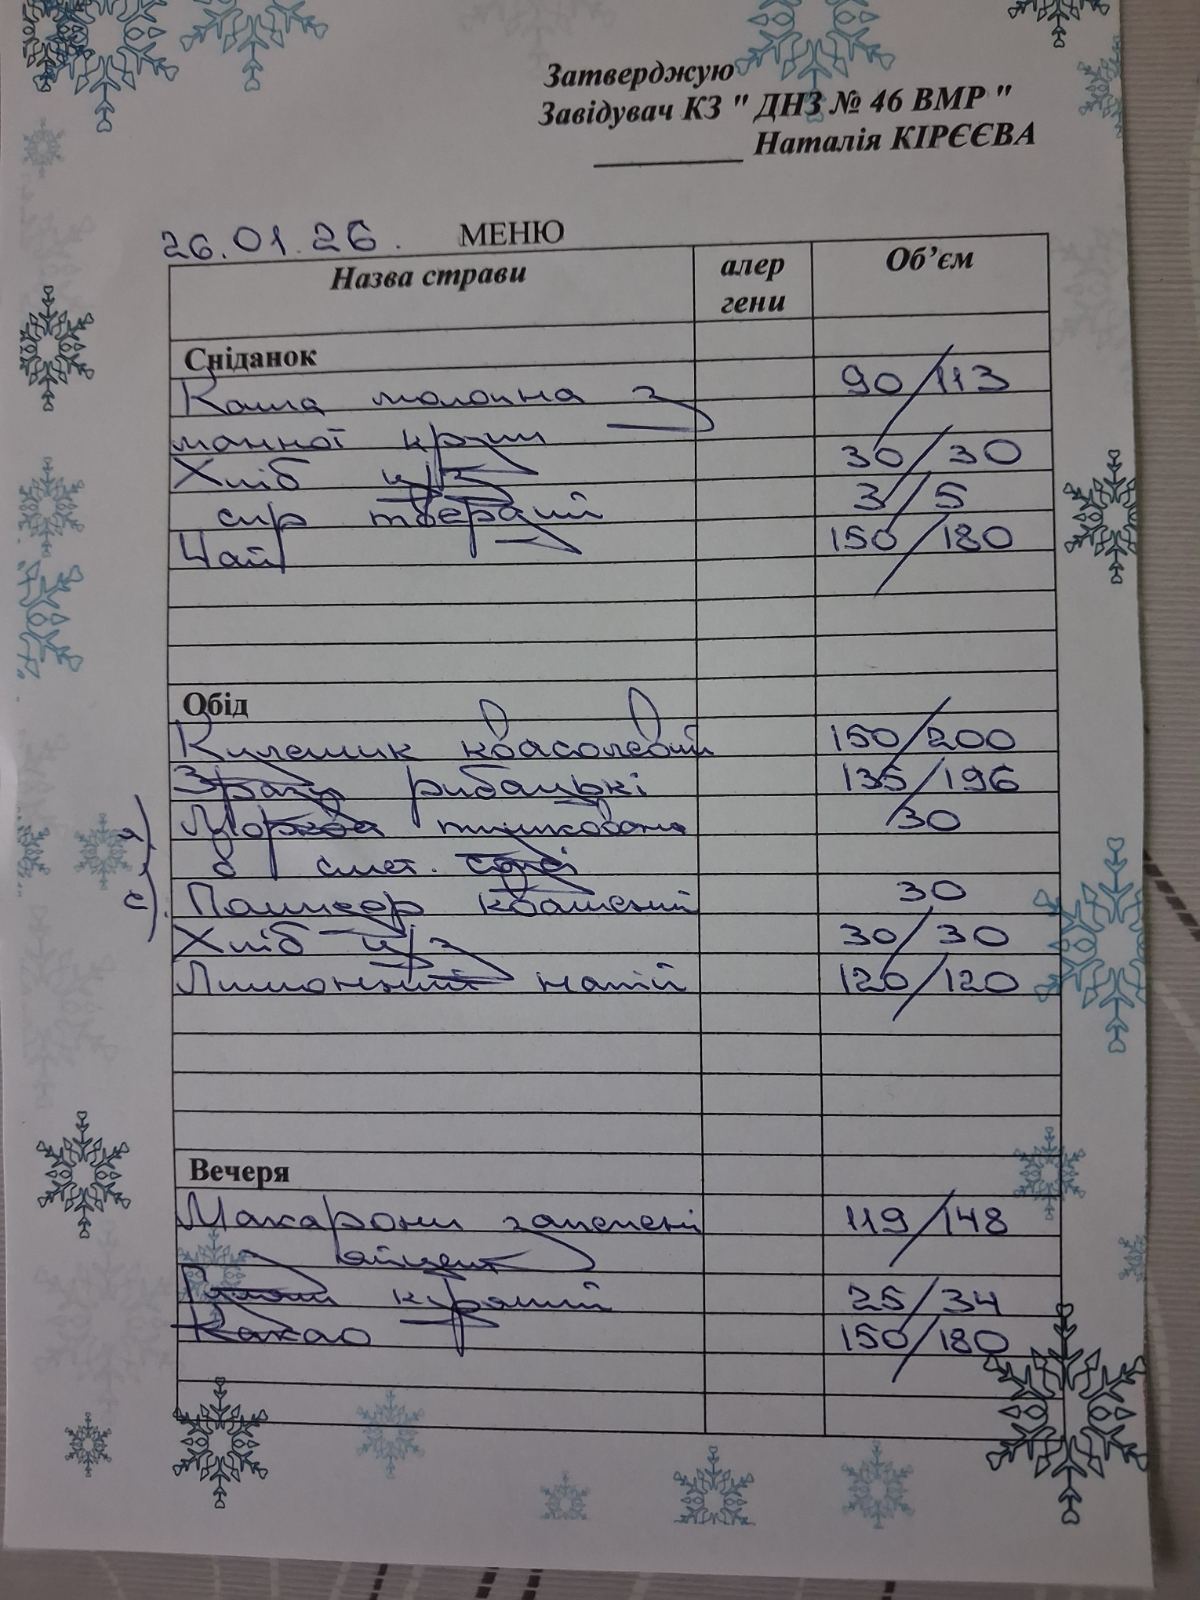 Затверджую
Завідувач КЗ " ДНЗ № 46 ВМР "
__________ Наталія КІРЄЄВА
26.01.26. МЕНЮ
Назва страви алер гени Об’єм
Сніданок
Каша молочна з 90/113
манної крупи
Хліб ц/з 30/30
сир твердий 3/5
Чай 150/180
Обід
Кулешик квасолевий 150/200
Зрази рибацькі 135/196
я) Морква тушкована 30
в смет. соусі
с) Помидор квашений 30
Хліб ц/з 30/30
Лимонний напій 120/120
Вечеря
Макарони запечені 119/148
яйцем
курячий 25/34
Какао 150/180